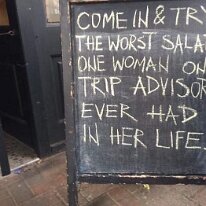 COME IN & TRY
THE WORST SALAD
ONE WOMAN ON
TRIP ADVISOR
EVER HAD
IN HER LIFE.